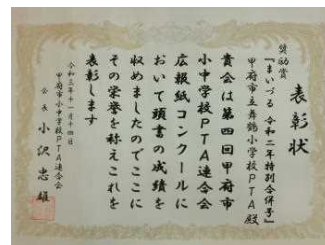 表彰状
奨励賞
『まいづる 令和二年特別合併号』
甲府市立舞鶴小学校PTA殿
貴会は第四回甲府市
小中学校PTA連合会
広報紙コンクールに
おいて頭書の成績を
収めましたのでここに
その栄誉を称えこれを
表彰します
令和三年十一月十四日
甲府市小中学校PTA連合会
会長 小沢忠雄